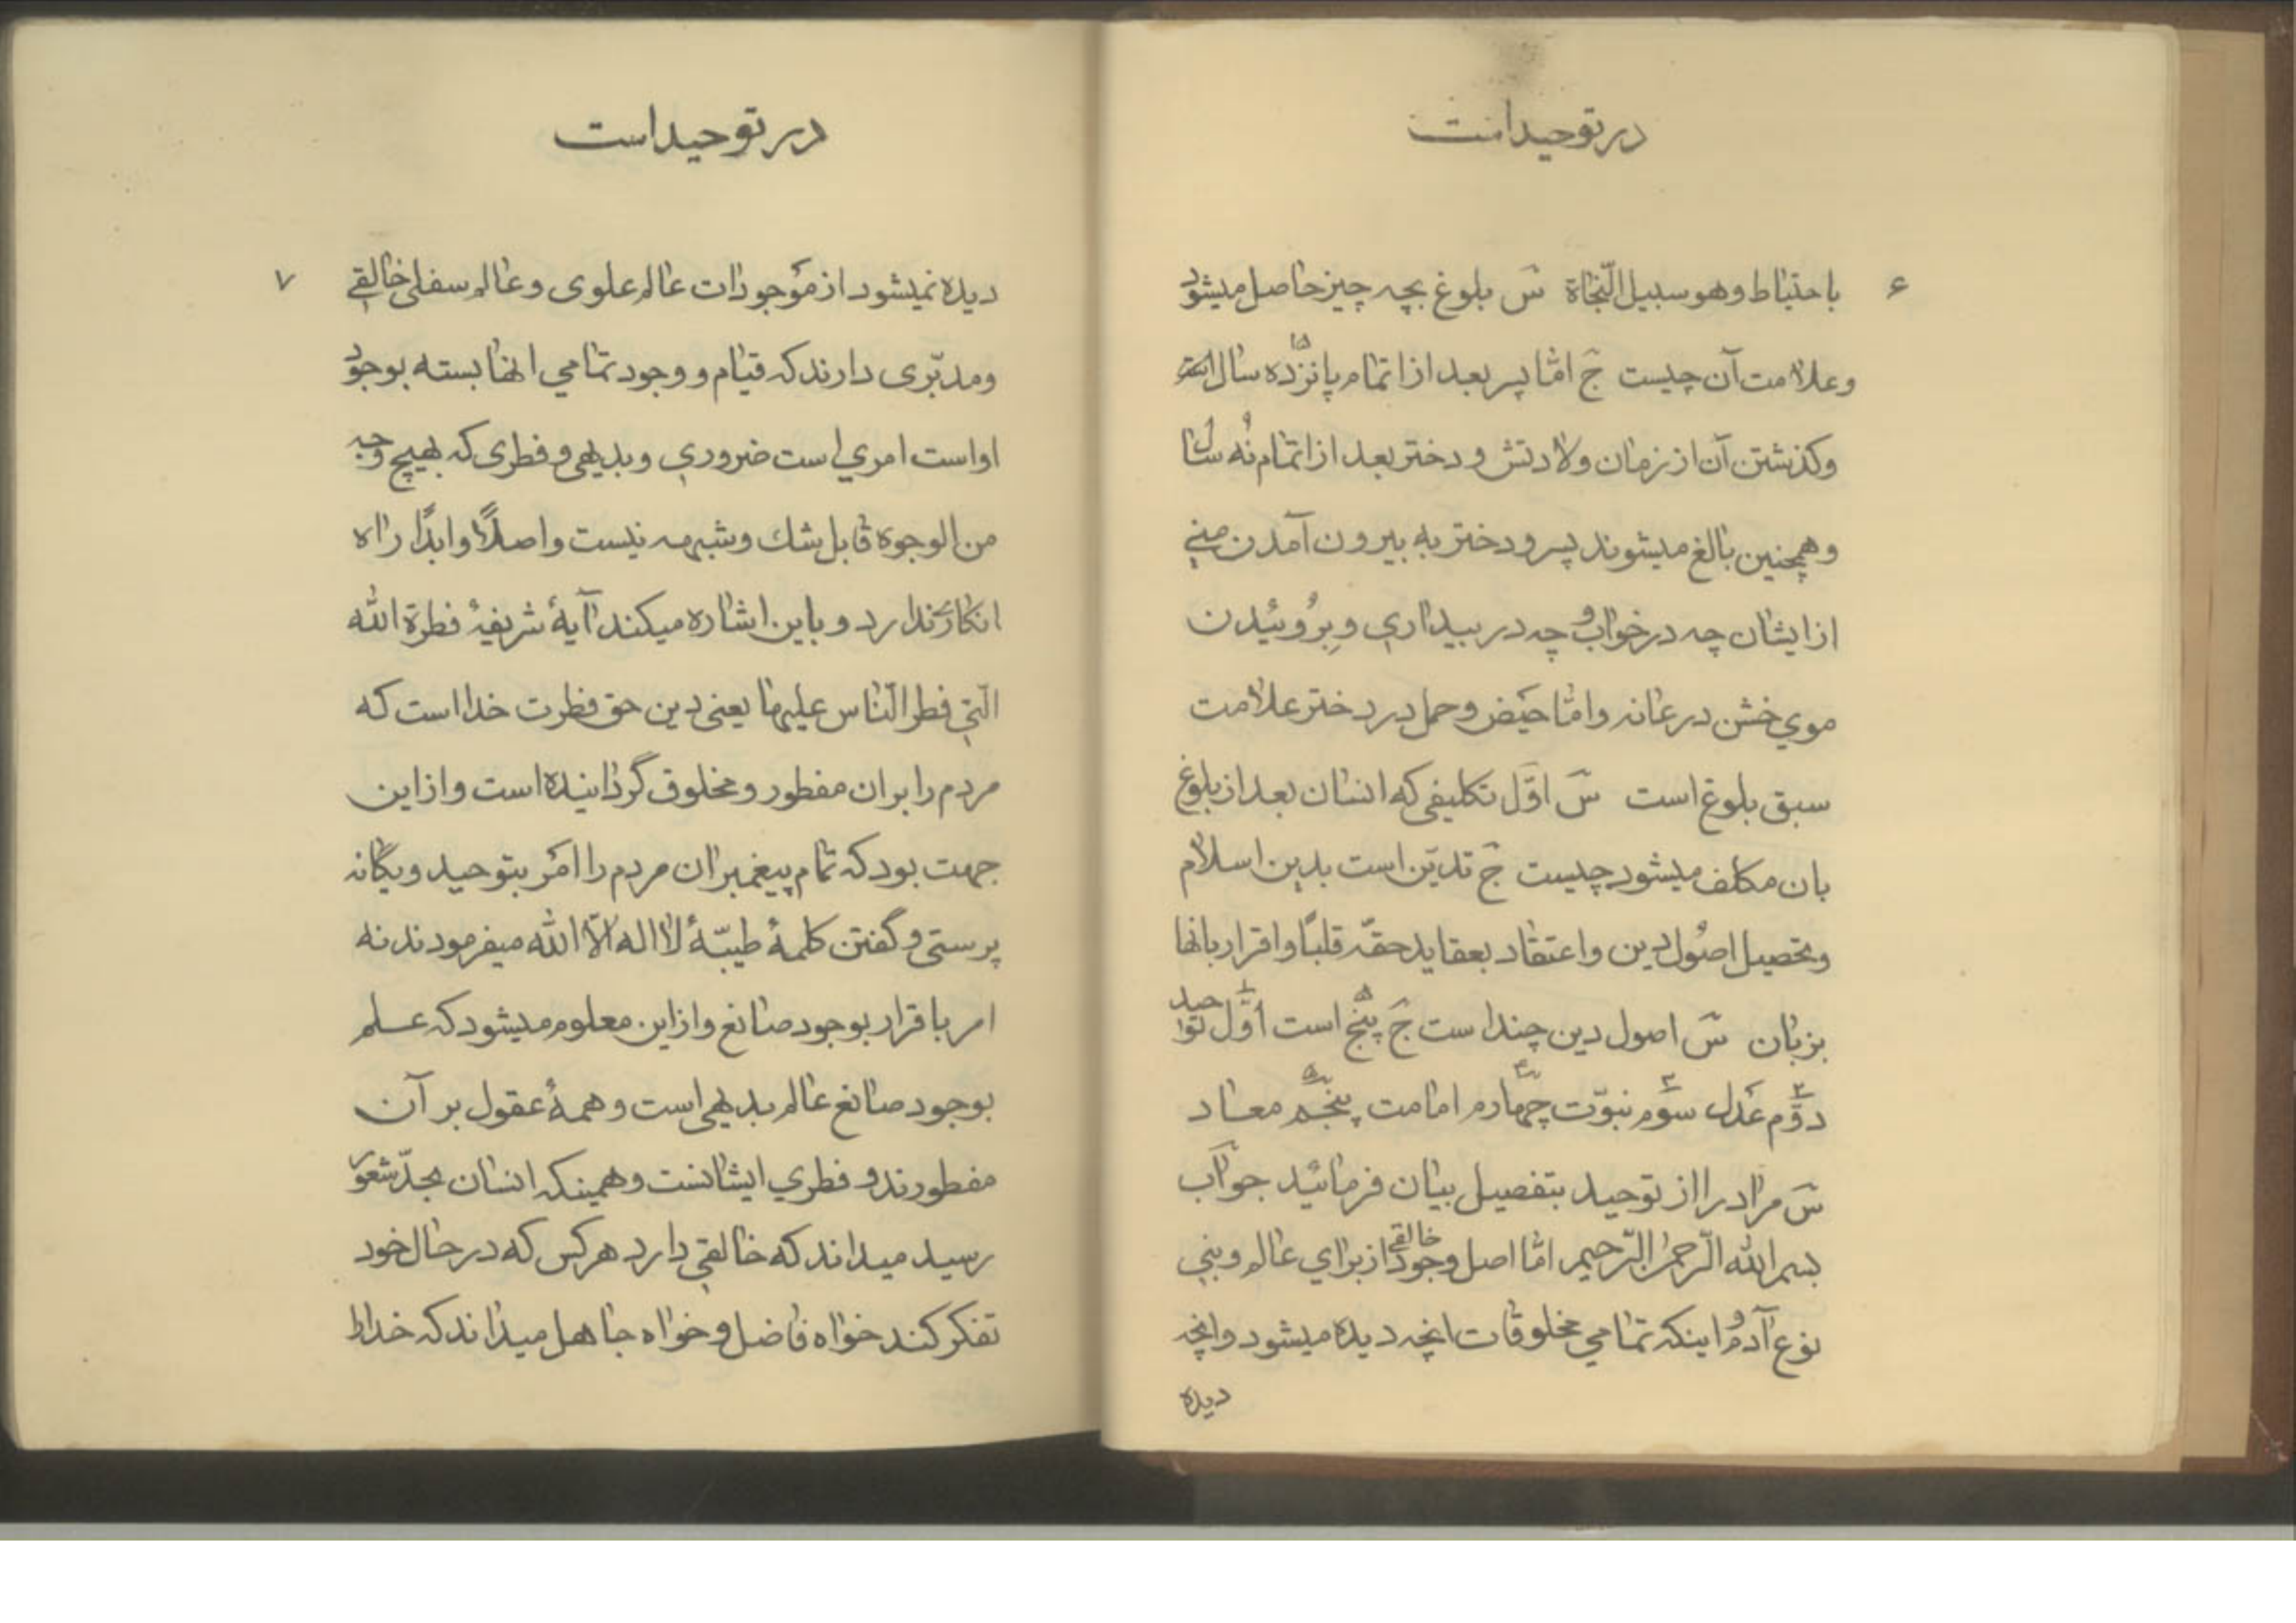 در توحید است
۶
باحتیاط وهو سبیل النّجاة سَ بلوغ بچه چیز حاصل میشود
وعلامت آن چیست جَ امّا پسر بعد از اتمام پانزده ۱۵ سال است
وکذشتن آن از زمان ولادتش ودختر بعد از اتمام نُه ۹ سال
وهمچنین بالغ میشوند پسر ودختر به بیرون آمدن منی
از ایشان چه در خواب و چه در بیداری وبِرُوئیدن
موی خشن در عانه وامّا حیَض وحمل در دختر علامت
سبق بلوغ است سَ اوّل تکلیفی که انسان بعد از بلوغ
بان مکلف میشود چیست جَ تدیّن است بدین اسلام
وتحصیل اصُول دین واعتقاد بعقاید حقّه قلبًا واقرار بانها
بزبان سَ اصول دین چند است جَ پنج ۵ است اوَّل ۱ توحید
دوَّم ۲ عَدل سوّم ۳ نبوّت چهارم ۴ امامت پنجم ۵ معاد
سَ مراد را از توحید بتفصیل بیان فرمائید جوآب
بسم الله الرّحمن الرّحیم امّا اصل وجود خالقی از برای عالم وبنی
نوع آدم و اینکه تمامی مخلوقات انچه دیده میشود وانچه
دیده
در توحید است
۷
دیده نمیشود از موَجودات عالم علوی وعالم سفلی خالقی
ومدبّری دارند که قیام و وجود تمامی انها بسته بوجود
او است امری است ضروری وبدیهی و فطری که بهیچ وجه
من الوجوه قابل شك وشبهه نیست واصلاً وابدًا راه
انکار ندارد و باین اشاره میکند آیهٔ شریفهٔ فطرة الله
الّتی فطر النّاس علیها یعنی دین حق فطرت خدا است که
مردم را بران مفطور ومخلوق گردانیده است واز این
جهت بود که تمام پیغمبران مردم را امَر بتوحید ویگانه
پرستی و گفتن کلمهٔ طیبّهٔ لا اله الّا الله میفرمودند نه
امر باقرار بوجود صانع واز این معلوم میشود که عـلم
بوجود صانع عالم بدیهی است وهمهٔ عقول بر آن
مفطورند و فطری ایشانست وهمینکه انسان بحدّ شعور
رسید میداند که خالقی دارد هرکس که در حال خود
تفکر کند خواه فاضل و خواه جاهل میداند که خدا